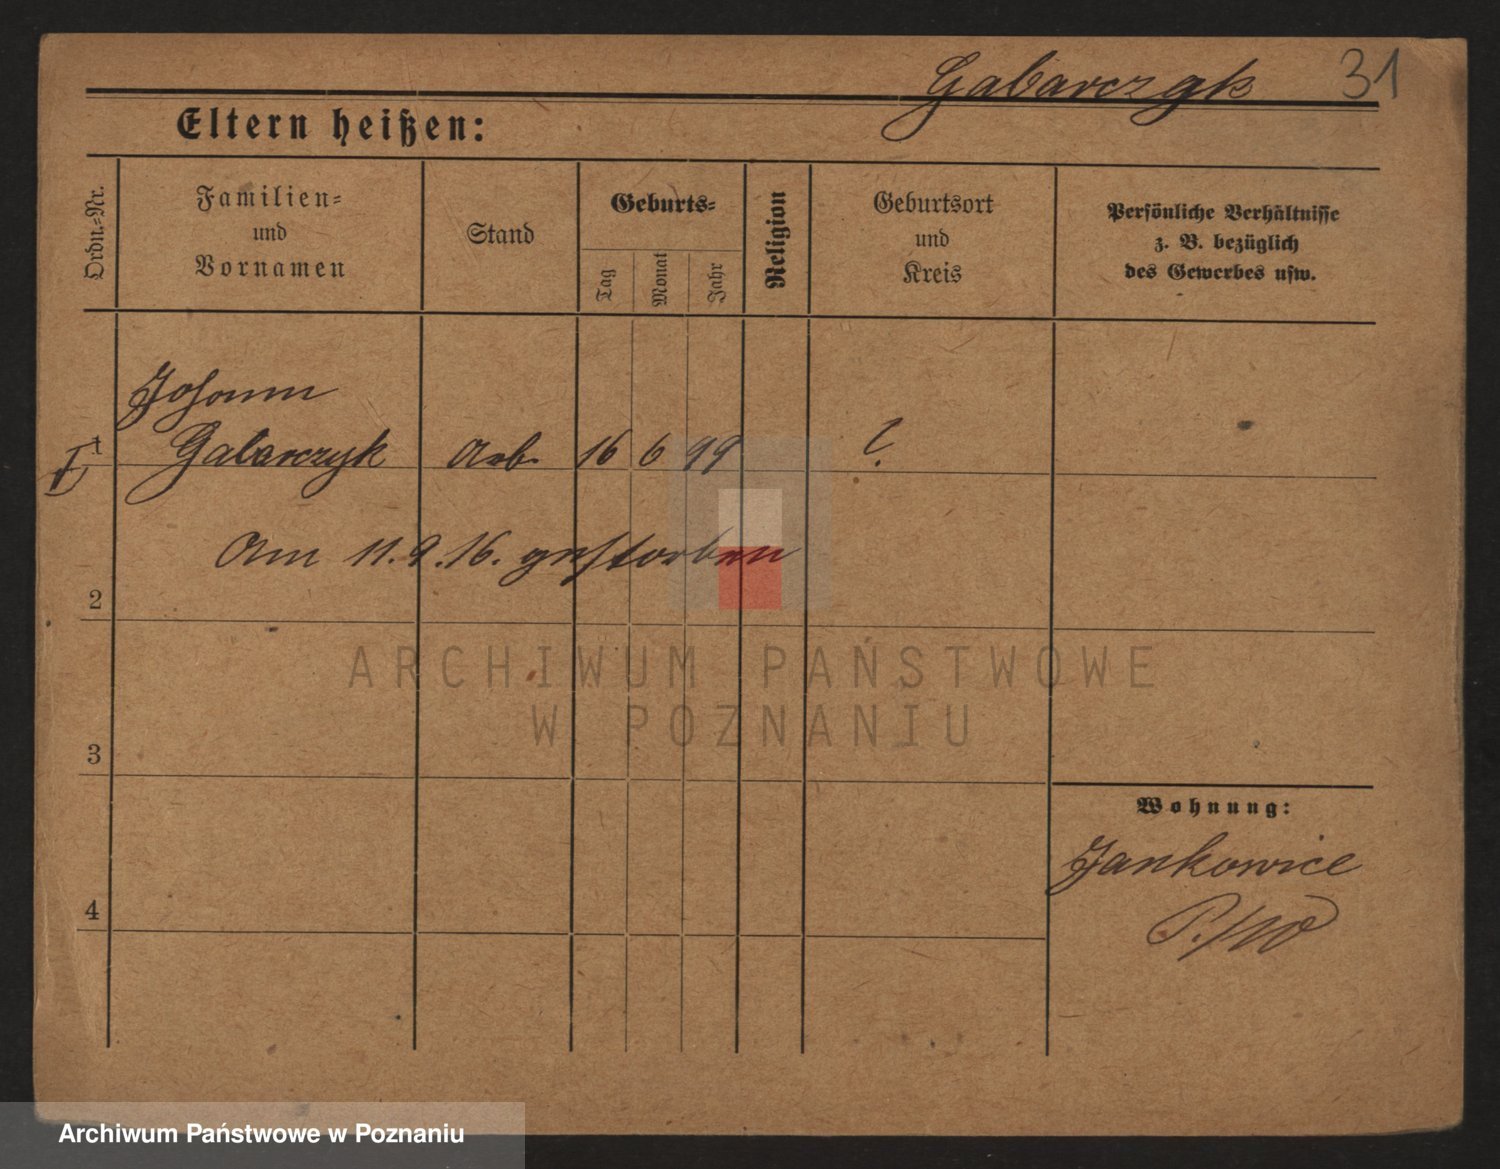 Gabarczyk 31
Eltern heißen:
Ordn.-Nr.
Familien-
und
Vornamen
Stand
Geburts-
Tag
Monat
Jahr
Religion
Geburtsort
und
Kreis
Persönliche Verhältnisse
z. B. bezüglich
des Gewerbes usw.
Johann
1 Gabarczyk Arb. 16 6 99 ?
Am 11.9.16. gestorben
2
ARCHIWUM PAŃSTWOWE
W POZNANIU
3
Wohnung:
Jankowice
4
Archiwum Państwowe w Poznaniu